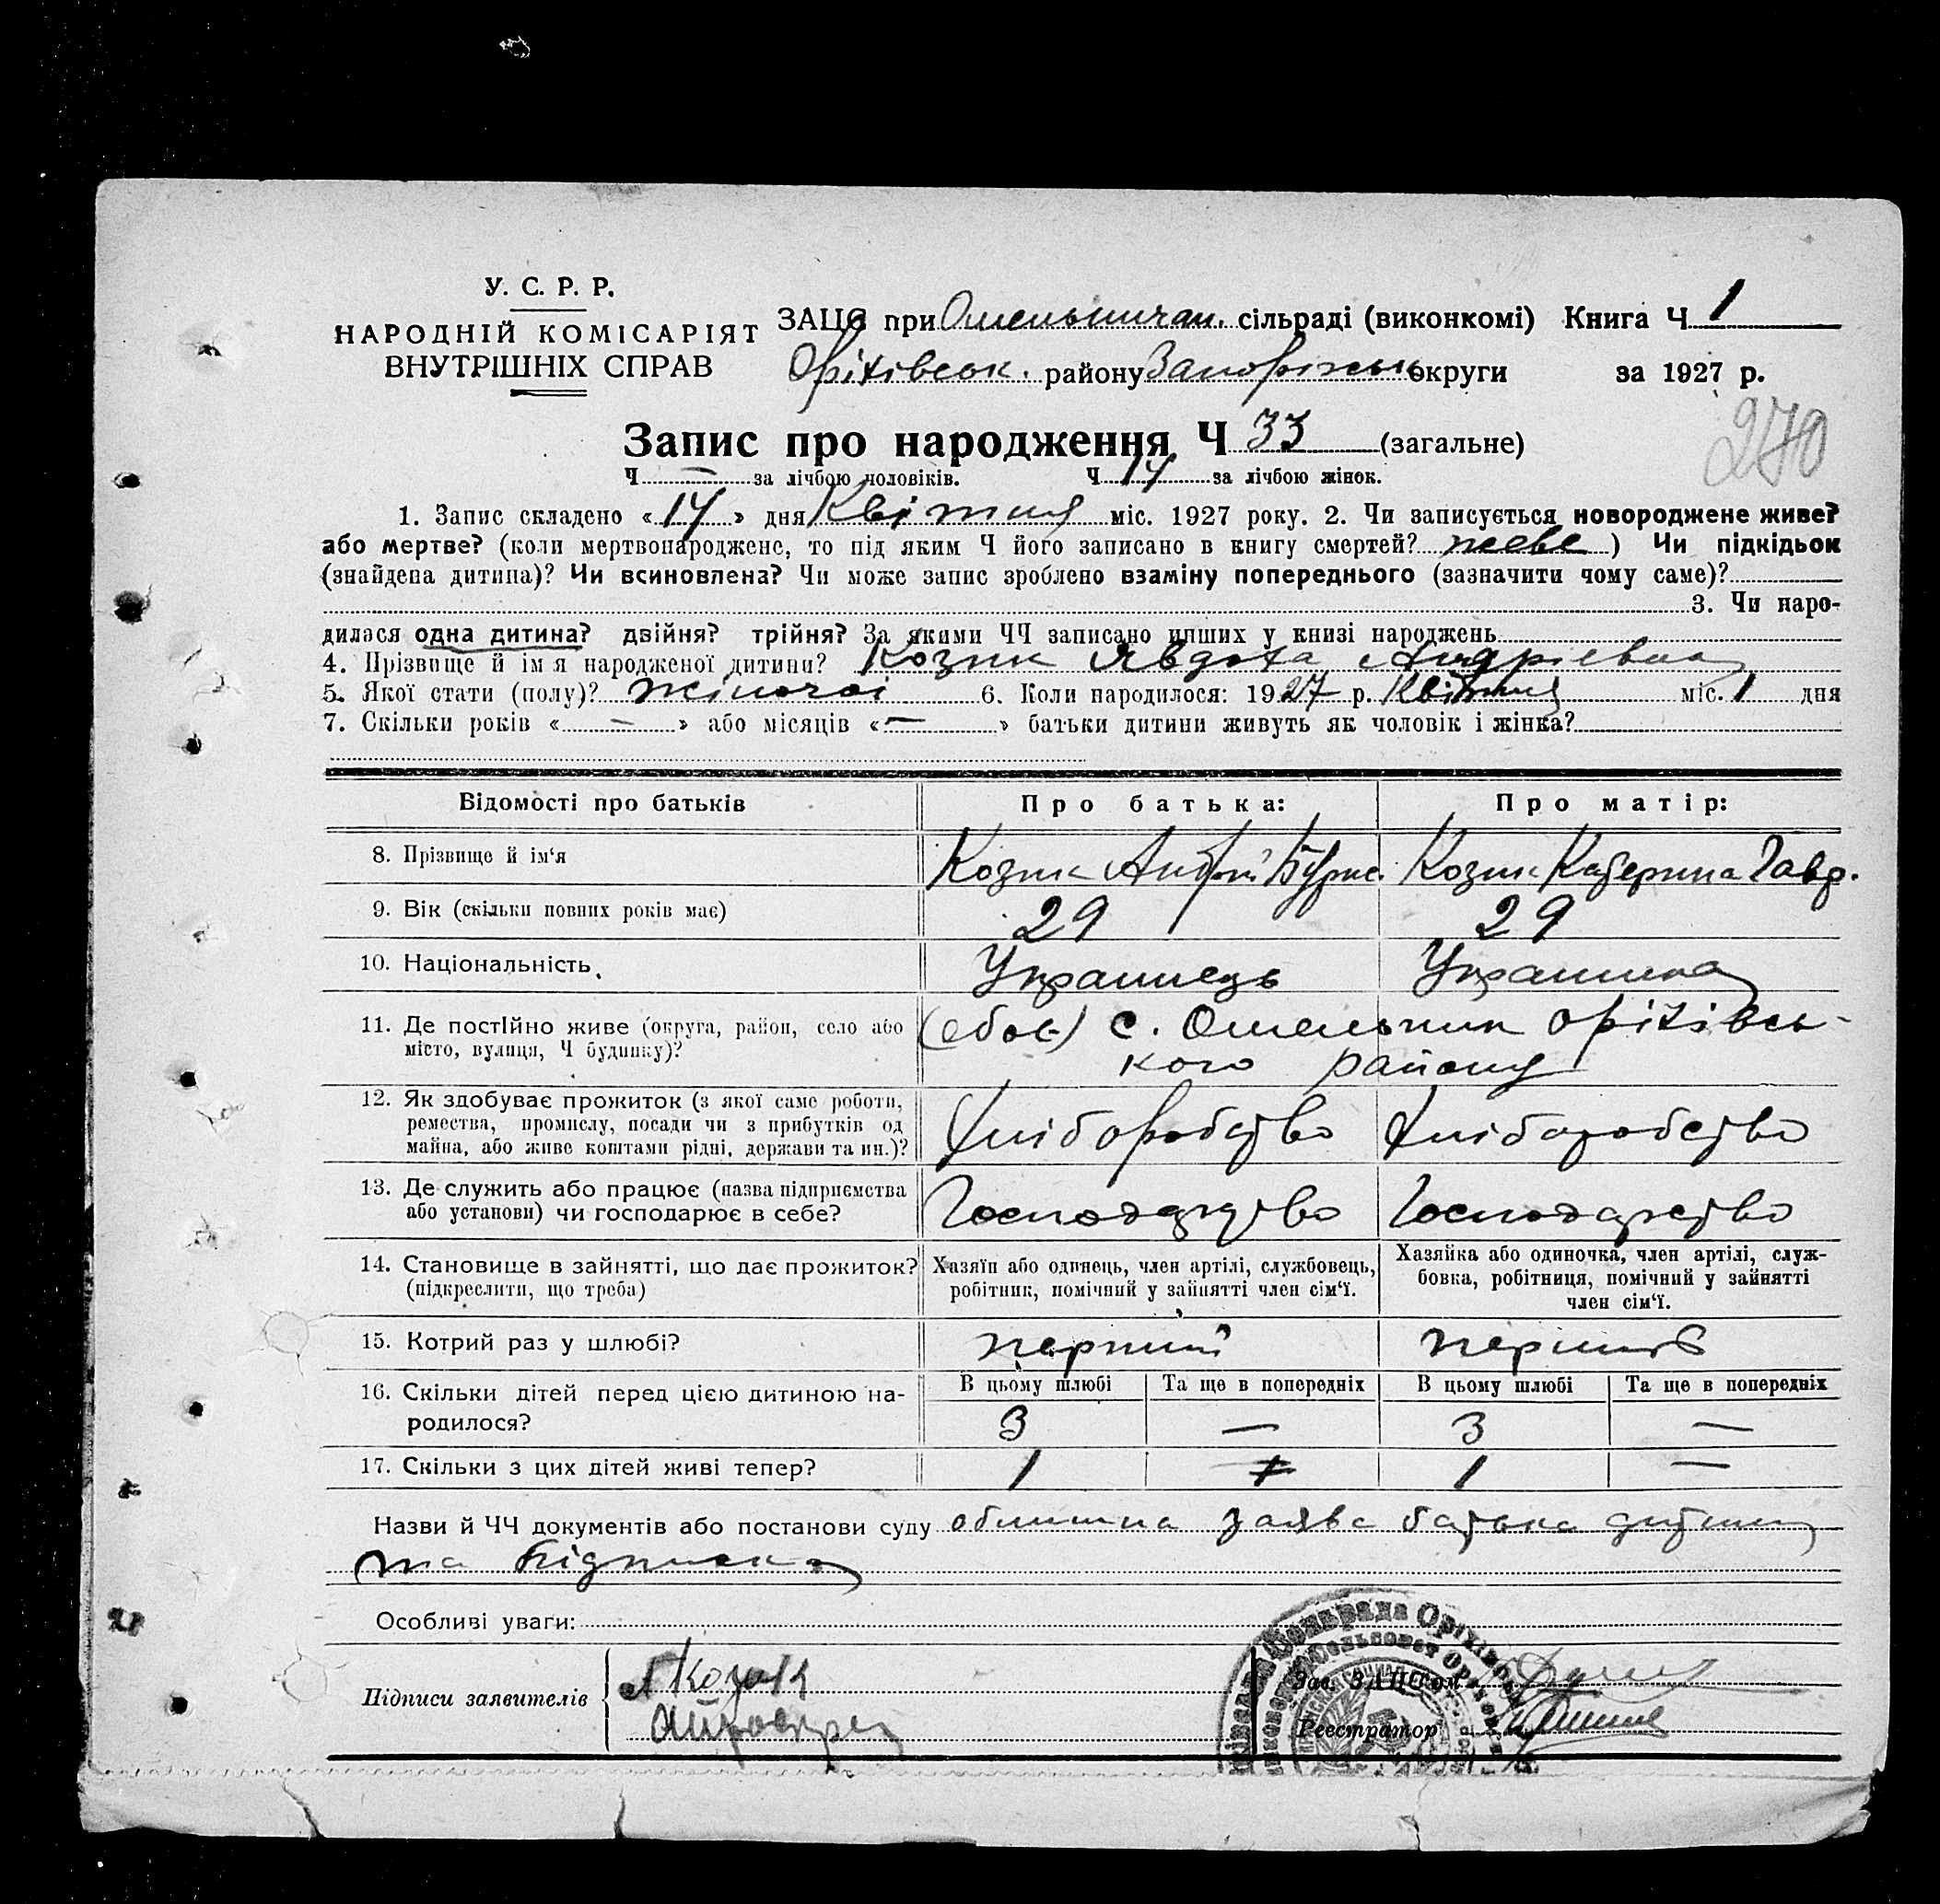 У. С. Р. Р.
НАРОДНІЙ КОМІСАРІЯТ
ВНУТРІШНІХ СПРАВ
ЗАЦС при Омельничан. сільраді (виконкомі) Книга Ч 1
Оріхівськ. району Запоріжськ округи за 1927 р.
270
Запис про народження Ч 33 (загальне)
Ч — за лічбою чоловіків. Ч 14 за лічбою жінок.
1. Запис складено « 14 » дня Квітня міс. 1927 року. 2. Чи записується новороджене живе?
або мертве? (коли мертвонароджене, то під яким Ч його записано в книгу смертей? живе ) Чи підкідьок
(знайдена дитина)? Чи всиновлена? Чи може запис зроблено взаміну попереднього (зазначити чому саме)?
3. Чи наро-
дилася одна дитина? двійня? трійня? За якими ЧЧ записано инших у книзі народжень
4. Прізвище й ім'я народженої дитини? Козик Явдоха Андріевна
5. Якої стати (полу)? жіночоі 6. Коли народилося: 1927 р. Квітня міс. 1 дня
7. Скільки років « — » або місяців « — » батьки дитини живуть як чоловік і жінка?
Відомості про батьків Про батька: Про матір:
8. Прізвище й ім'я Козик Андрій Козик Катерина Гавр.
9. Вік (скільки повних років має) 29 29
10. Національність Украинець Украинка
11. Де постійно живе (округа, район, село або (обоє) с. Омельник Оріхівсь-
місто, вулиця, Ч будинку)? кого району
12. Як здобуває прожиток (з якої саме роботи,
ремества, промислу, посади чи з прибутків од Хліборобство Хліборобство
майна, або живе коштами рідні, держави та ин.)?
13. Де служить або працює (назва підприємства
або установи) чи господарює в себе? Господарство Господарство
14. Становище в зайнятті, що дає прожиток? Хазяїн або одинець, член артілі, службовець, Хазяйка або одиночка, член артілі, служ-
(підкреслити, що треба) робітник, помічний у зайнятті член сім'ї. бовка, робітниця, помічний у зайнятті
член сім'ї.
15. Котрий раз у шлюбі? перший перший
16. Скільки дітей перед цією дитиною на- В цьому шлюбі Та ще в попередніх В цьому шлюбі Та ще в попередніх
родилося? 3 — 3 —
17. Скільки з цих дітей живі тепер? 1 1 —
Назви й ЧЧ документів або постанови суду заява батька дитини
та підписка
Особливі уваги:
Підписи заявителів А Козик
Зав. ЗАЦСом
Реєстратор